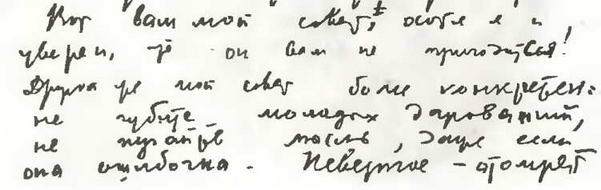 Вот вам мой совет, хотя я и
уверен, что он вам не пригодится!
Другой же мой совет более конкретен:
не губите молодых дарований,
не пугайте мысль, даже если
она ошибочна. Неверное – отомрёт